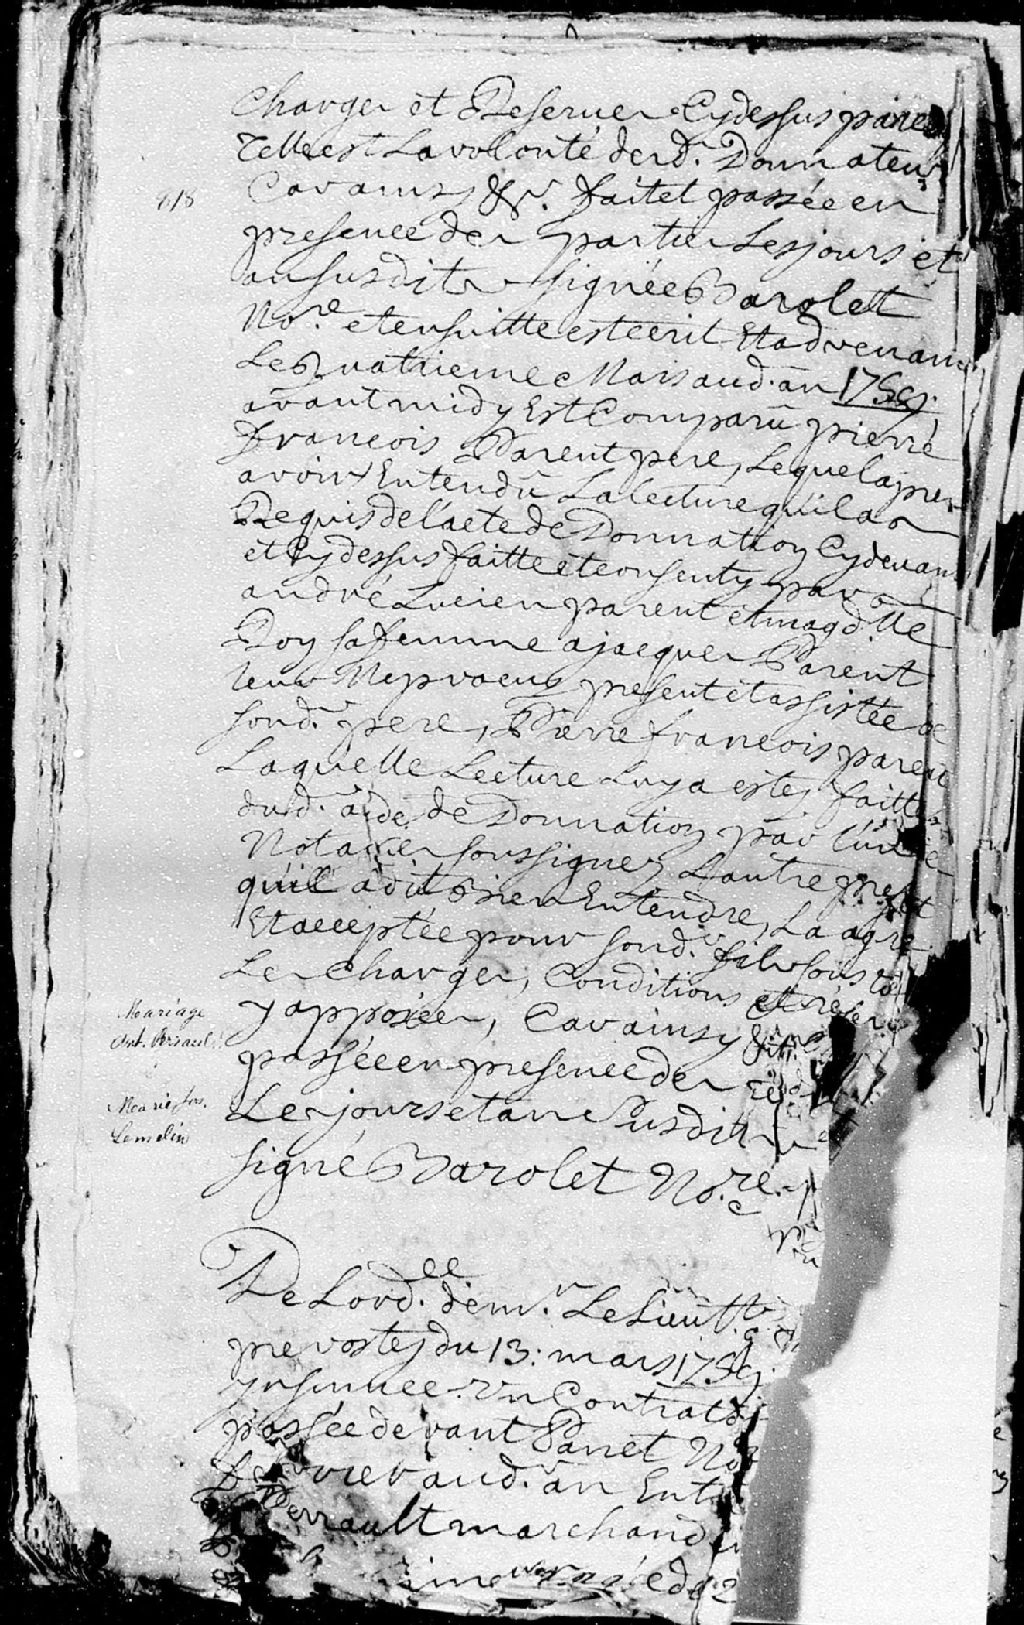 Charges et Reserues Cydessus car
Telle est La volonté dud. Donnateur
818
Car ainsy &r. fait et passée en
presence des parties Les jours et
an susdits signée Barolet
No.re et ensuitte est écrit Et advenant
Le Quatrieme Mars aud. an 1759.
avant midy Est Comparu pierre
francois Parent pere, Lequel apres
avoir Entendu La lecture qu'il a
Requis de l'acte de Donnation Cydevant
et Cydessus faitte et consenty par
andré Lucien parent et magd.lle
Roy sa femme a jacques Parent
leur Nepvaeu present et assistée de
sond. pere, Pierre francois parent
Laquelle Lecture Luy a estey faitte
dud. acte de Donnation par L'un des
Notaires soussignez L'autre present
qu'il a dit Bien Entendre, La agrée
Et acceptée pour sond. fils sous
Les Charges, Conditions et reserves
y apposées, Car ainsy &r.
passée en presence des
Les jours et an Susdits
signé Barolet No.re
Mariage
Ant. Perault
Marie Jos.
Lemelin
De Lord.ce de mr. Le Lieutt.
prevostey du 13: mars 1759.
ynsinuee Un Contrat
passée devant Panet No
fevrier aud. an Ent
Perrault marchand